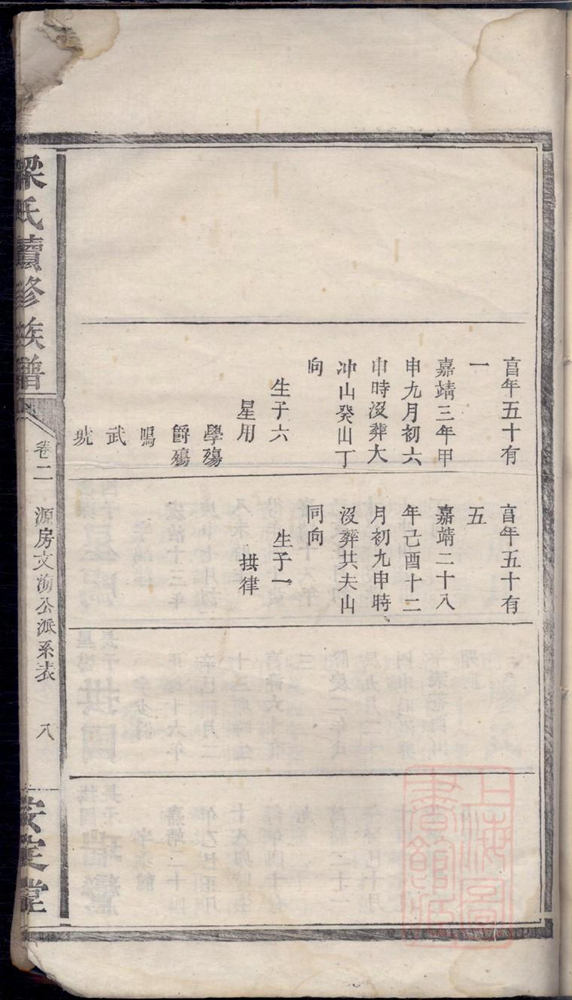 享年五十有
一
嘉靖三年甲
申九月初六
申時沒葬大
冲山癸山丁
向
生子六
星用
學殤
爵殤
鳴
武
虓
享年五十有
五
嘉靖二十八
年己酉十二
月初九申時
沒葬共夫山
同向
生子一
拱律
梁氏續修族譜
卷二
源房文海公派系表
八
安定堂
上海圖書館藏